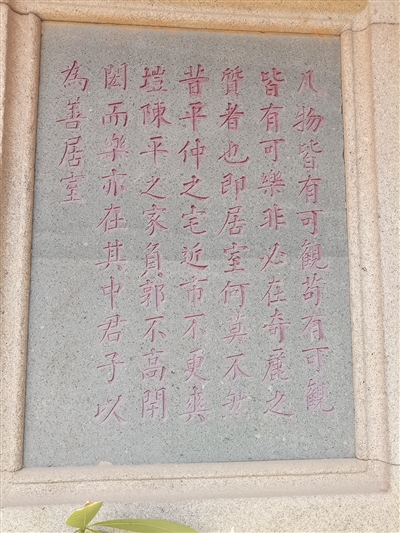 凡物皆有可觀苟有可觀
皆有可樂非必在奇麗之
質者也即居室何莫不然
昔平仲之宅近市不更爽
塏陳平之家負郭不高閈
閎而樂亦在其中君子以
為善居室